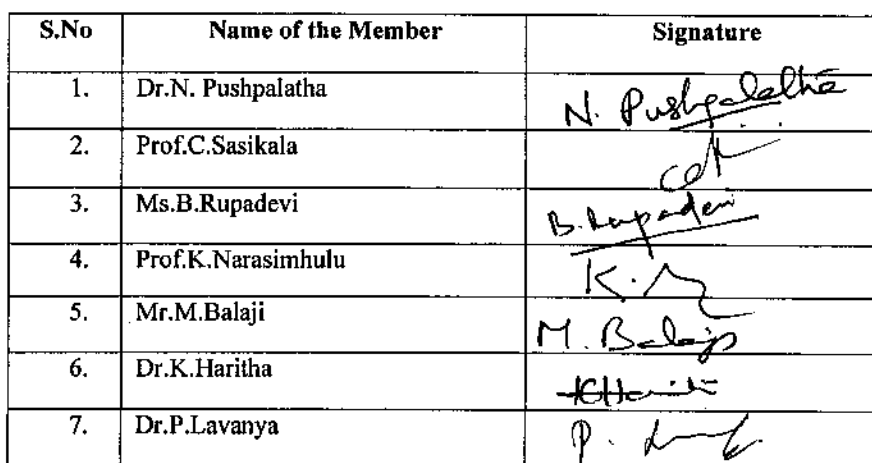 S.No Name of the Member Signature
1. Dr.N. Pushpalatha N. Pushpalatha
2. Prof.C.Sasikala
3. Ms.B.Rupadevi B.Rupadevi
4. Prof.K.Narasimhulu K.
5. Mr.M.Balaji M. Balaji
6. Dr.K.Haritha KHaritha
7. Dr.P.Lavanya P.